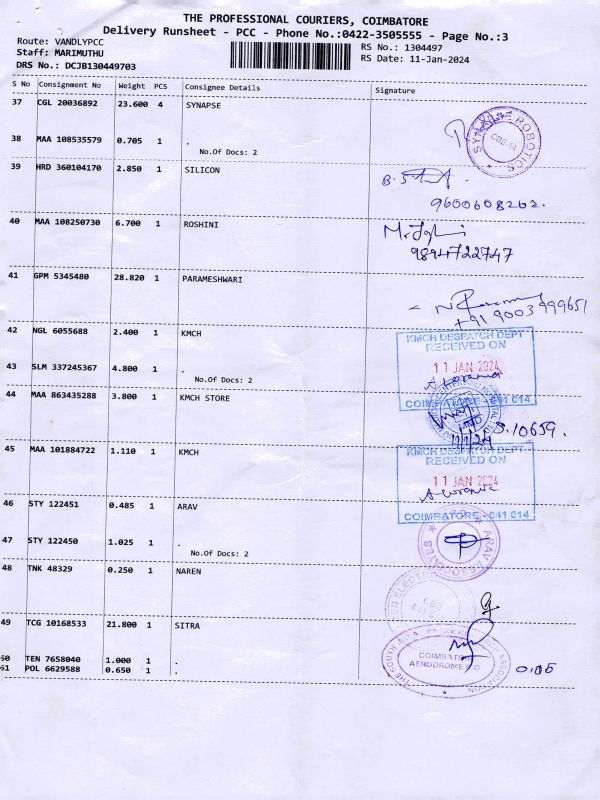 THE PROFESSIONAL COURIERS, COIMBATORE
Delivery Runsheet - PCC - Phone No.:0422-3505555 - Page No.:3
Route: VANDLYPCC
RS No.: 1304497
Staff: MARIMUTHU
RS Date: 11-Jan-2024
DRS No.: DCJB130449703
S No Consignment No Weight PCS Consignee Details Signature
37 CGL 20036892 23.600 4 SYNAPSE
ROBOTICS
CBE-14
38 MAA 108535579 0.705 1 .
No.Of Docs: 2
39 HRD 360104170 2.850 1 SILICON
9600608262.
40 MAA 108250730 6.700 1 ROSHINI
9894722747
41 GPM 5345480 28.820 1 PARAMESHWARI
+91 9003999651
42 NGL 6055688 2.400 1 KMCH
KMCH DESPATCH DEPT
RECEIVED ON
11 JAN 2024
COIMBATORE - 641 014
43 SLM 337245367 4.800 1 .
No.Of Docs: 2
44 MAA 863435288 3.800 1 KMCH STORE
S.10659.
45 MAA 101884722 1.110 1 KMCH
KMCH DESPATCH DEPT
RECEIVED ON
11 JAN 2024
COIMBATORE - 641 014
46 STY 122451 0.485 1 ARAV
ARAV
47 STY 122450 1.025 1 .
No.Of Docs: 2
48 TNK 48329 0.250 1 NAREN
49 TCG 10168533 21.800 1 SITRA
THE SOUTH ASSOCIATION
COIMBATORE
AERODROME P.O
50 TEN 7658040 1.000 1 .
51 POL 6629588 0.650 1 .